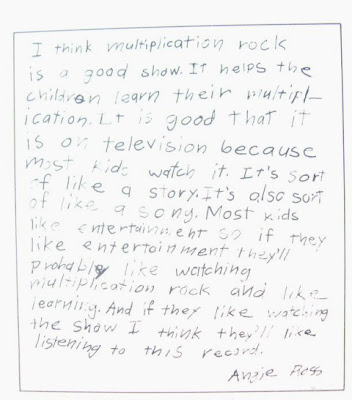 I think multiplication rock
is a good show. It helps the
children learn their multipl-
ication. It is good that it
is on television because
most kids watch it. It's sort
of like a story. It's also sort
of like a song. Most kids
like entertainment so if they
like entertainment they'll
probably like watching
multiplication rock and like
learning. And if they like watching
the show I think they'll like
listening to this record.
Angie Ross